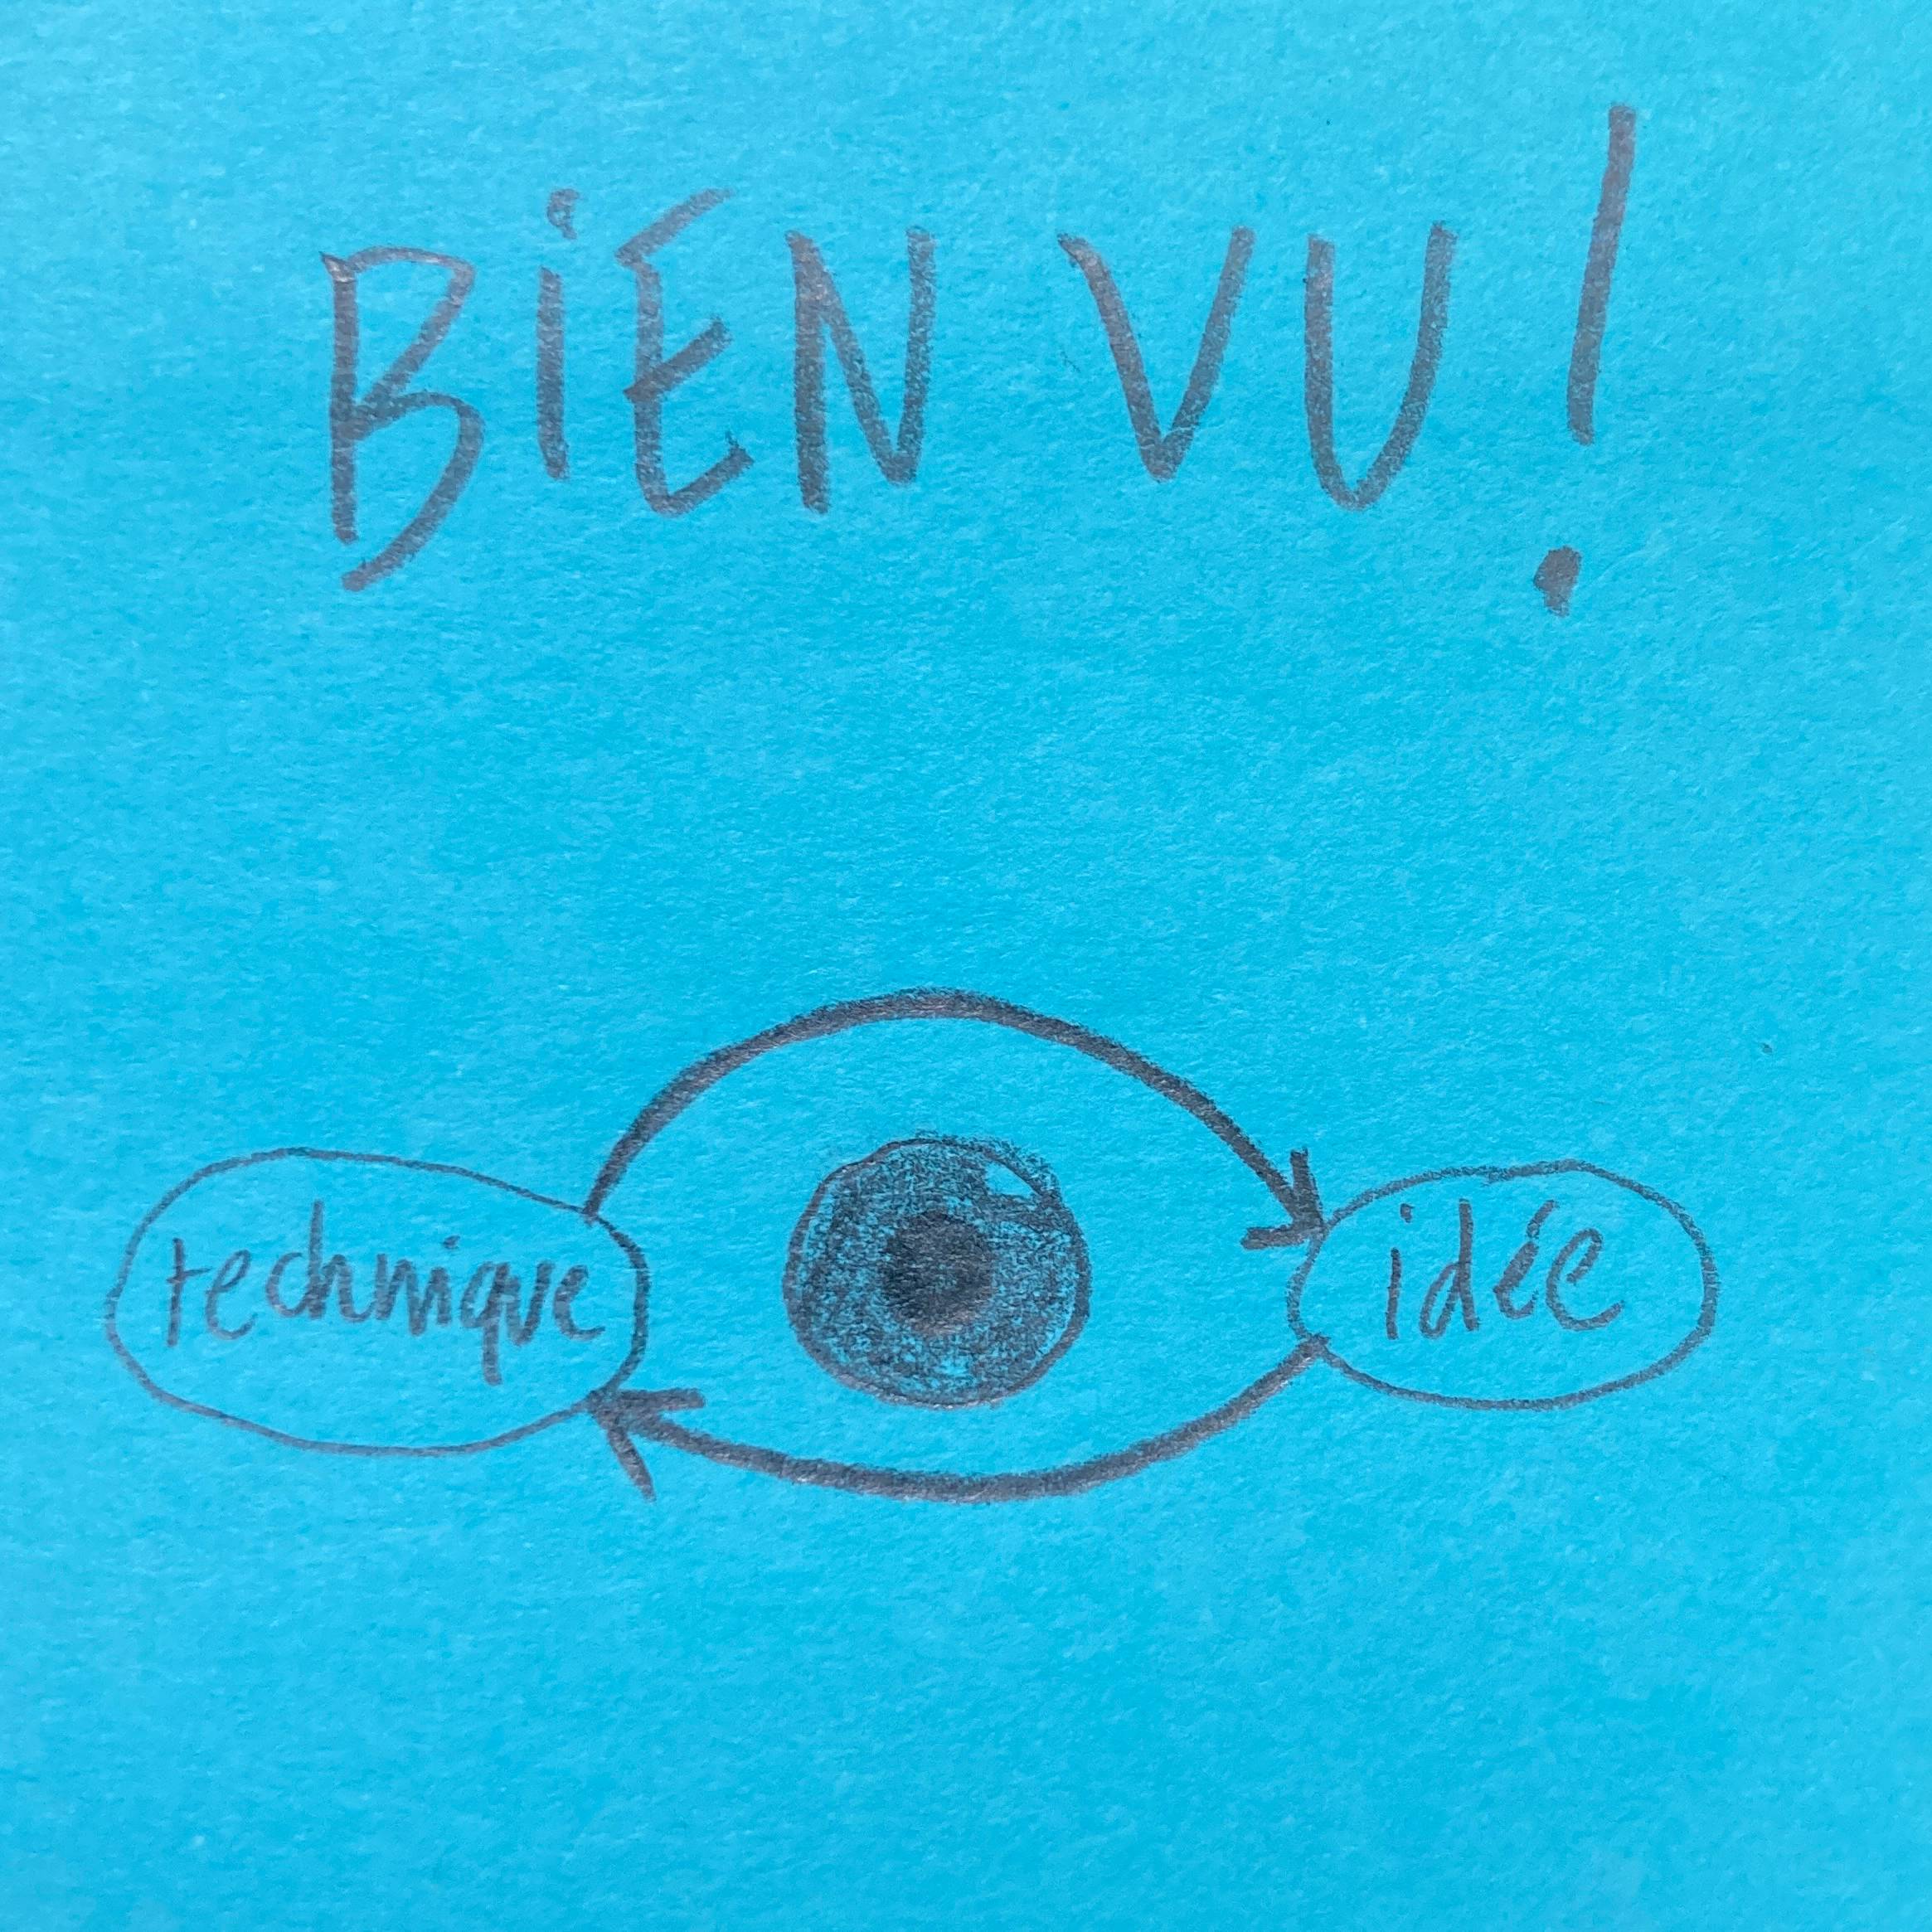 BiEN VU!
technique
idée